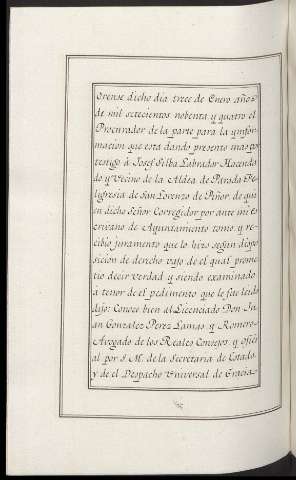 Orense dicho dia trece de Enero año
de mil setecientos nobenta y quatro el
Procurador de la parte para la ynfor-
macion que está dando presento mas por
testigo á Josef Silba Labrador Hacenda
do y Vecino de la Aldea de Parada Fe-
ligresia de San Lorenzo de Piñor de qui
en dicho Señor Corregidor por ante mi és
crivano de Aiuntamiento tomó y re-
cibio juramento que lo hizo según dispo
sición de derecho vajo de el qual prome-
tio decir Verdad y siendo examinado
á tenor de el pedimento que le fué leido
dijo: Conoce bien al Licenciado Don Ju-
an Gonzalez Perez Lamas y Romero
Avogado de los Reales Consejos y ofici
al por S. M. de la Secretaría de Estado
y de el Despacho Universal de Gracia